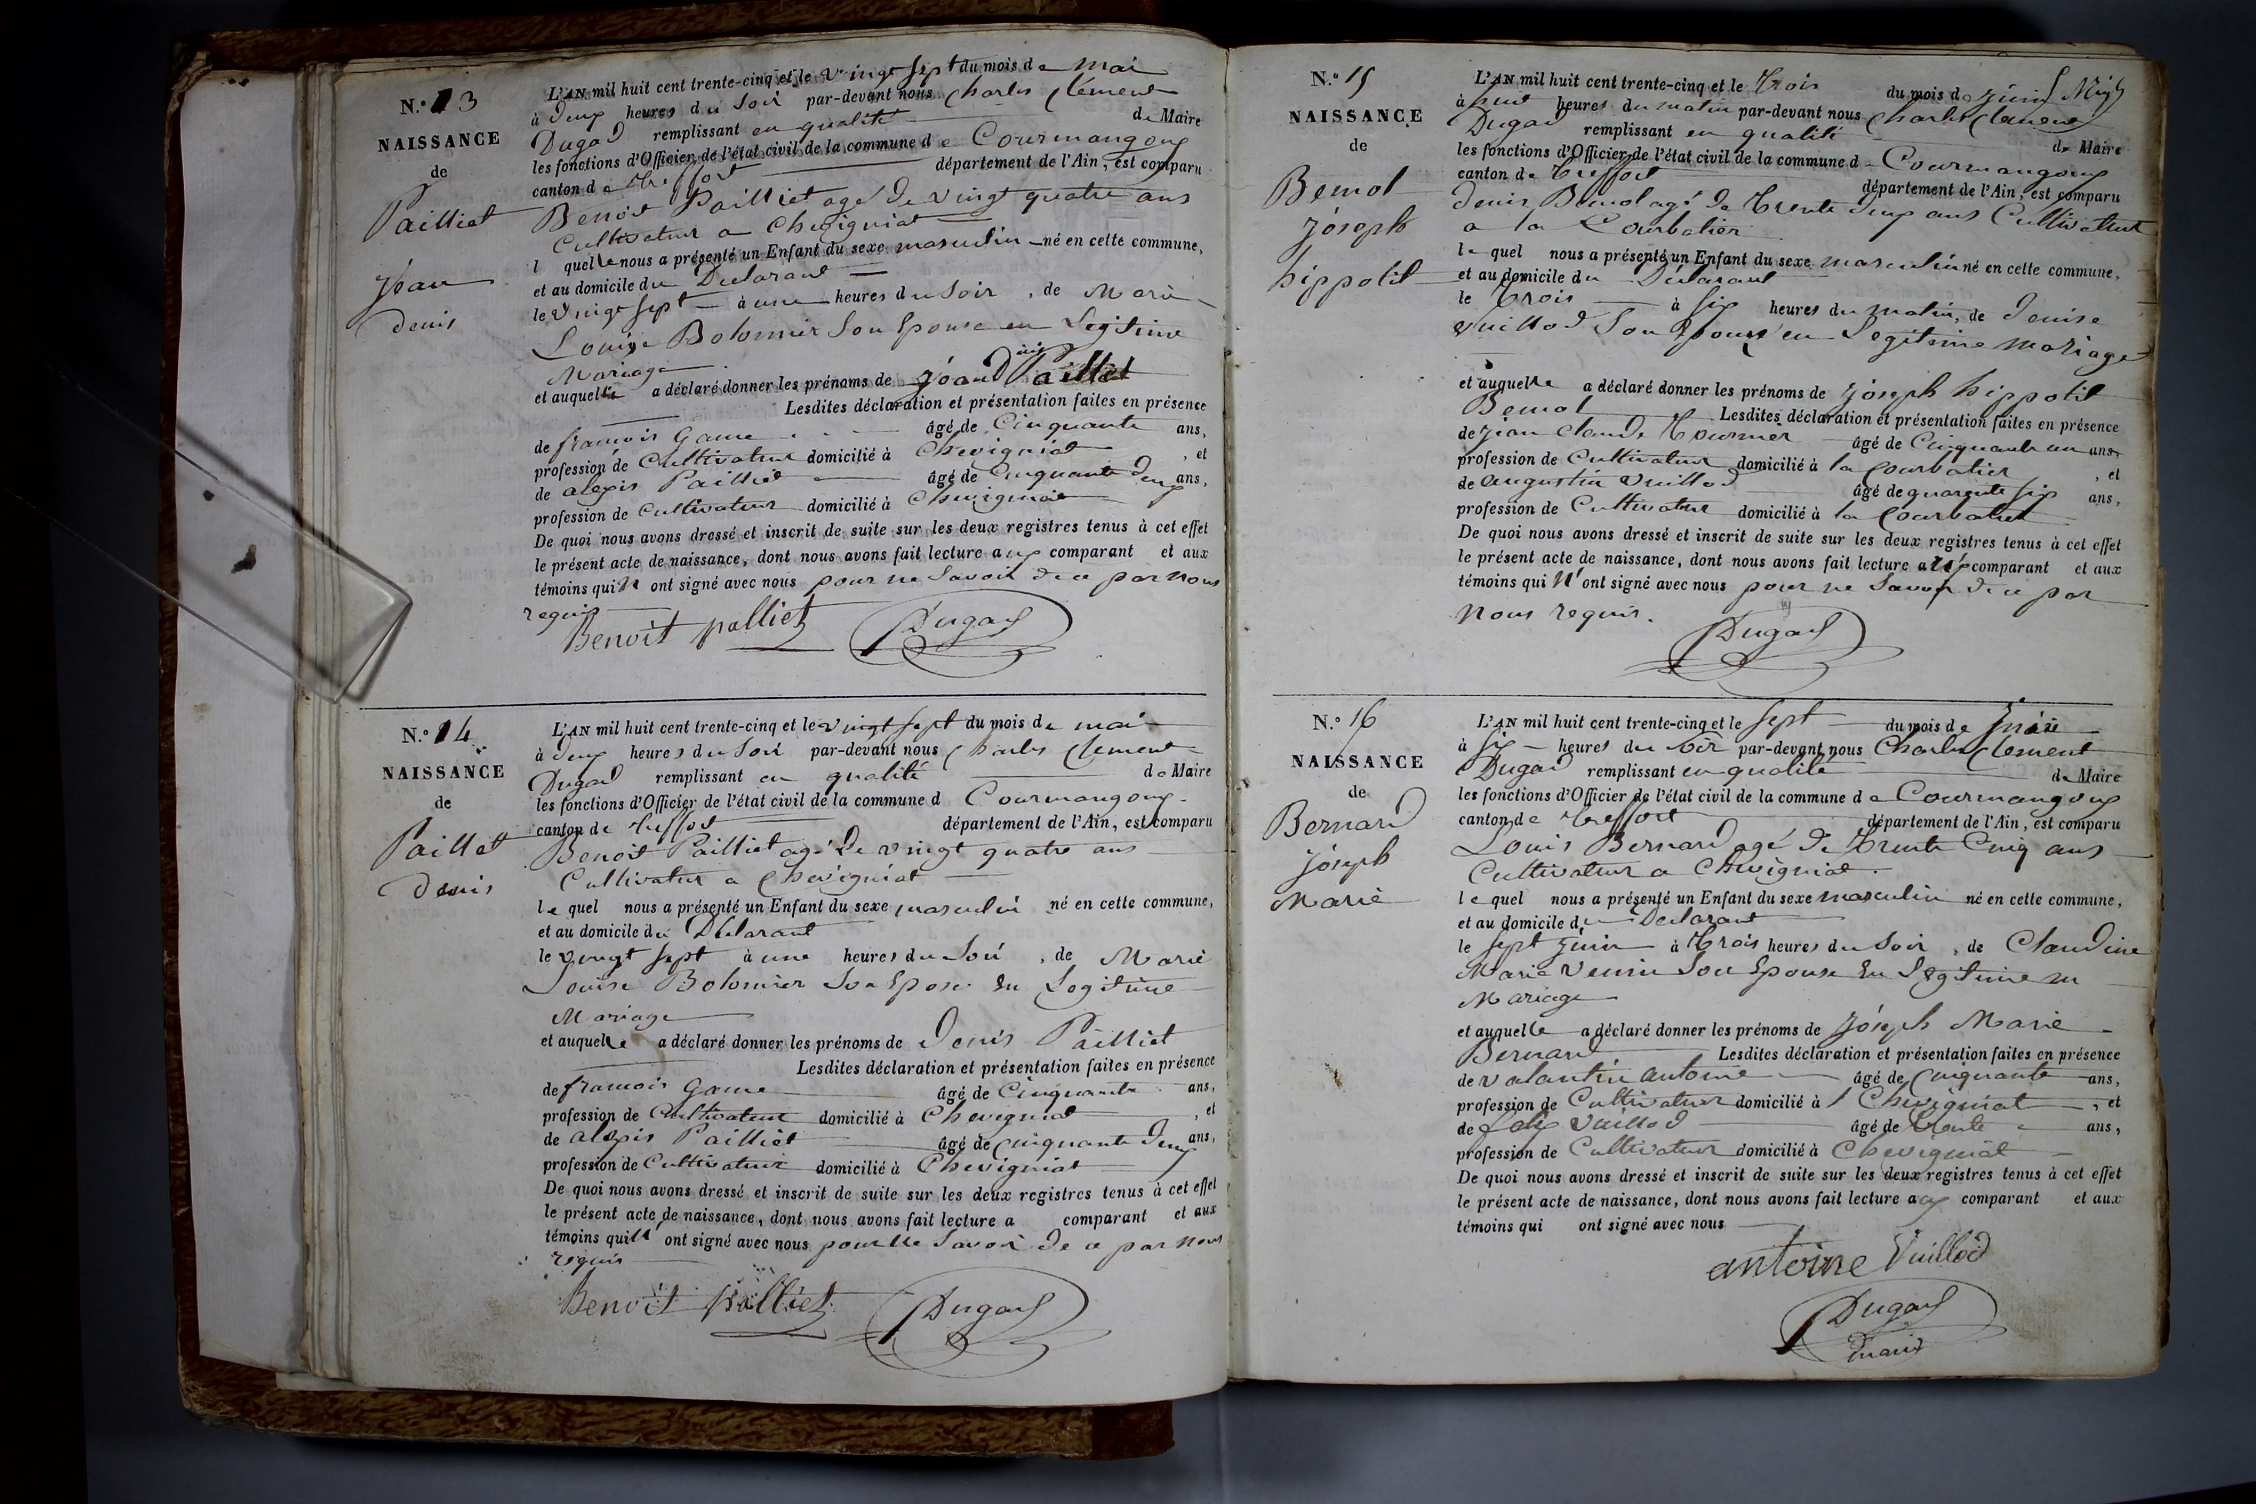 N.o 13
NAISSANCE
de
Pailliet
Jean
denis
L'AN mil huit cent trente-cinq et le vingt sept du mois de mai
à deux heures du soir par-devant nous Charles Clément
Dugad remplissant en qualité de Maire
les fonctions d'Officier de l'état civil de la commune de Courmangoux
canton de treffort département de l'Ain, est comparu
Benoit Pailliet agé de vingt quatre ans
Cultivateur a Chevigniat
l quelle nous a présenté un Enfant du sexe masculin né en cette commune,
et au domicile du Declarant
le vingt sept à une heures du soir, de Marie
Louise Bolomier son Epouse en Legitime
Mariage
et auquelle a déclaré donner les prénoms de jean Denis Paillet
Lesdites déclaration et présentation faites en présence
de francois Game âgé de Cinquante ans,
profession de Cultivateur domicilié à Chevigniat, et
de alexis Pailliet âgé de Cinquante deux ans,
profession de Cultivateur domicilié à Chevigniat
De quoi nous avons dressé et inscrit de suite sur les deux registres tenus à cet effet
le présent acte de naissance, dont nous avons fait lecture aux comparant et aux
témoins qui n ont signé avec nous pour ne savoir de ce par nous
requis
Benoit palliet Dugad
N.o 14
NAISSANCE
de
Paillet
Denis
L'AN mil huit cent trente-cinq et le vingt sept du mois de mai
à deux heures du soir par-devant nous Charles Clement
Dugad remplissant en qualité de Maire
les fonctions d'Officier de l'état civil de la commune d Courmangoux
canton de treffort département de l'Ain, est comparu
Benoit Pailliet agé de vingt quatre ans
Cultivateur a Chevigniat
le quel nous a présenté un Enfant du sexe masculin né en cette commune,
et au domicile du Déclarant
le vingt sept à une heures du soir, de Marie
Louise Bolomier son Epouse En Legitime
Mariage
et auquelle a déclaré donner les prénoms de Denis Pailliet
Lesdites déclaration et présentation faites en présence
de francois Game âgé de Cinquante ans,
profession de Cultivateur domicilié à Chevigniat, et
de alexis Pailliet âgé de cinquante deux ans,
profession de Cultivateur domicilié à Chevigniat
De quoi nous avons dressé et inscrit de suite sur les deux registres tenus à cet effet
le présent acte de naissance, dont nous avons fait lecture a comparant et aux
témoins qui n' ont signé avec nous pour ne savoir de ce par nous
requis
Benoit palliet Dugad
N.o 15
NAISSANCE
de
Bemol
jóseph
hippolit
L'AN mil huit cent trente-cinq et le trois du mois de juin
à huit heures du matin par-devant nous Charles Clement
Dugad remplissant en qualité de Maire
les fonctions d'Officier de l'état civil de la commune de Courmangoux
canton de treffort département de l'Ain, est comparu
denis Bemol agé de trente deux ans Cultivateur
a la Courbatier
le quel nous a présenté un Enfant du sexe masculin né en cette commune,
et au domicile du Déclarant
le trois à six heures du matin, de Denise
Vuillod son Epouse en Legitime mariage
et auquelle a déclaré donner les prénoms de jóseph hippolit
Bemol Lesdites déclaration et présentation faites en présence
de jean Claude tournier âgé de Cinquante un ans
profession de Cultivateur domicilié à la Courbatier, et
de augustin Vuillod âgé de quarente six ans,
profession de Cultivateur domicilié à la Courbatier
De quoi nous avons dressé et inscrit de suite sur les deux registres tenus à cet effet
le présent acte de naissance, dont nous avons fait lecture aux comparant et aux
témoins qui n' ont signé avec nous pour ne savoir de ce par
nous requis.
Dugad
N.o 16
NAISSANCE
de
Bernard
jóseph
Marie
L'AN mil huit cent trente-cinq et le sept du mois de juin
à six heures du soir par-devant nous Charles Clement
Dugad remplissant en qualité de Maire
les fonctions d'Officier de l'état civil de la commune de Courmangoux
canton de treffort département de l'Ain, est comparu
Louis Bernard agé de trente Cinq ans
Cultivateur a Chevigniat
le quel nous a présenté un Enfant du sexe masculin né en cette commune,
et au domicile du Declarant
le sept juin à trois heures du soir, de Claudine
Marie son Epouse En Legitime m
Mariage
et auquelle a déclaré donner les prénoms de jóseph Marie
Bernard Lesdites déclaration et présentation faites en présence
de valantin antoine âgé de Cinquante ans,
profession de Cultivateur domicilié à Chevigniat, et
de felix Vuillod âgé de trente ans,
profession de Cultivateur domicilié à Chevigniat
De quoi nous avons dressé et inscrit de suite sur les deux registres tenus à cet effet
le présent acte de naissance, dont nous avons fait lecture aux comparant et aux
témoins qui ont signé avec nous
antoine Vuillod
Dugad
maire